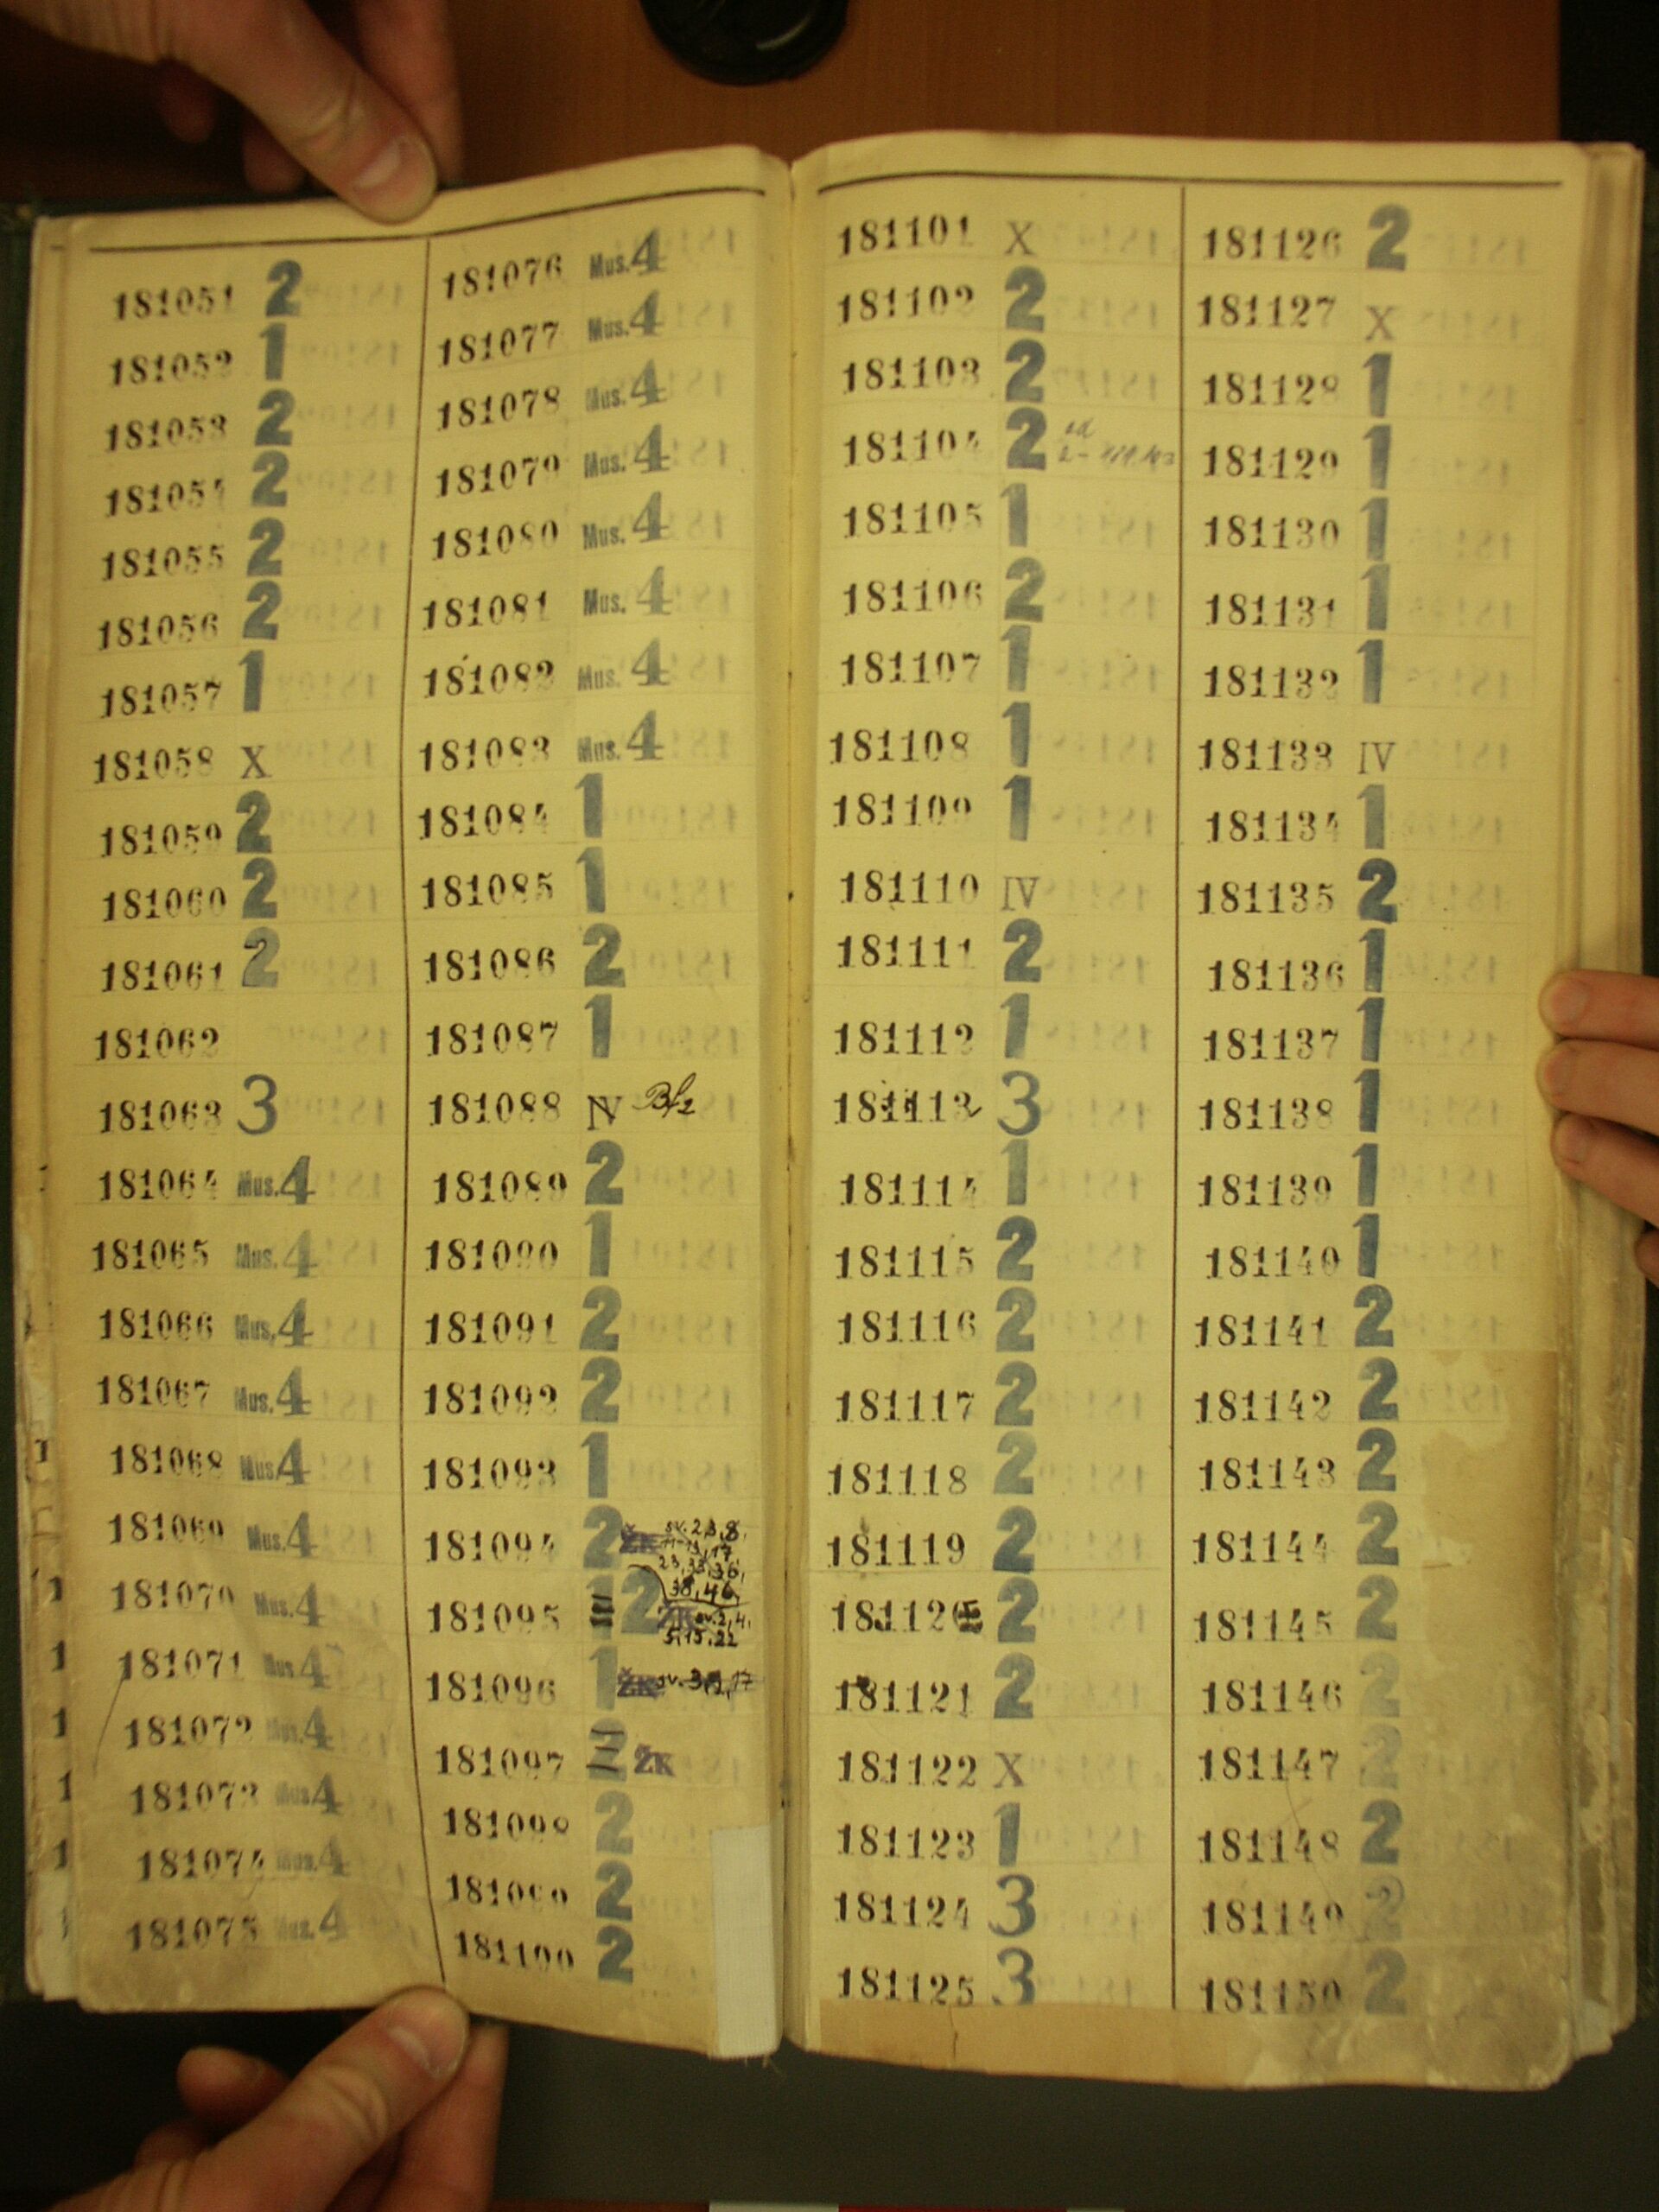 181051 2
181052 1
181053 2
181054 2
181055 2
181056 2
181057 1
181058 X
181059 2
181060 2
181061 2
181062
181063 3
181064 Mus. 4
181065 Mus. 4
181066 Mus. 4
181067 Mus. 4
181068 Mus. 4
181069 Mus. 4
181070 Mus. 4
181071 Mus 4
181072 Mus. 4
181073 Mus 4
181074 Mus. 4
181075 Mus. 4
181076 Mus. 4
181077 Mus. 4
181078 Mus. 4
181079 Mus. 4
181080 Mus. 4
181081 Mus. 4
181082 Mus. 4
181083 Mus. 4
181084 1
181085 1
181086 2
181087 1
181088 IV B/2
181089 2
181090 1
181091 2
181092 2
181093 1
181094 2 ŽK sv. 2,3,8,
23,33,36,
38,46,
181095 1 2 ŽK sv. 2,4,
5,15,22
181096 1 ŽK sv. 3,
181097 2 ŽK
181098 2
181099 2
181100 2
181101 X
181102 2
181103 2
181104 2
181105 1
181106 2
181107 1
181108 1
181109 1
181110 IV
181111 2
181112 1
181113 3
181114 1
181115 2
181116 2
181117 2
181118 2
181119 2
181120 2
181121 2
181122 X
181123 1
181124 3
181125 3
181126 2
181127 X
181128 1
181129 1
181130 1
181131 1
181132 1
181133 IV
181134 1
181135 2
181136 1
181137 1
181138 1
181139 1
181140 1
181141 2
181142 2
181143 2
181144 2
181145 2
181146 2
181147 2
181148 2
181149 2
181150 2